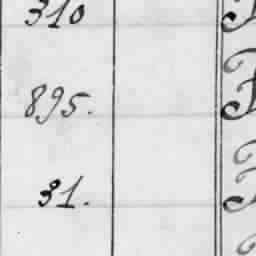 310
895.
31.